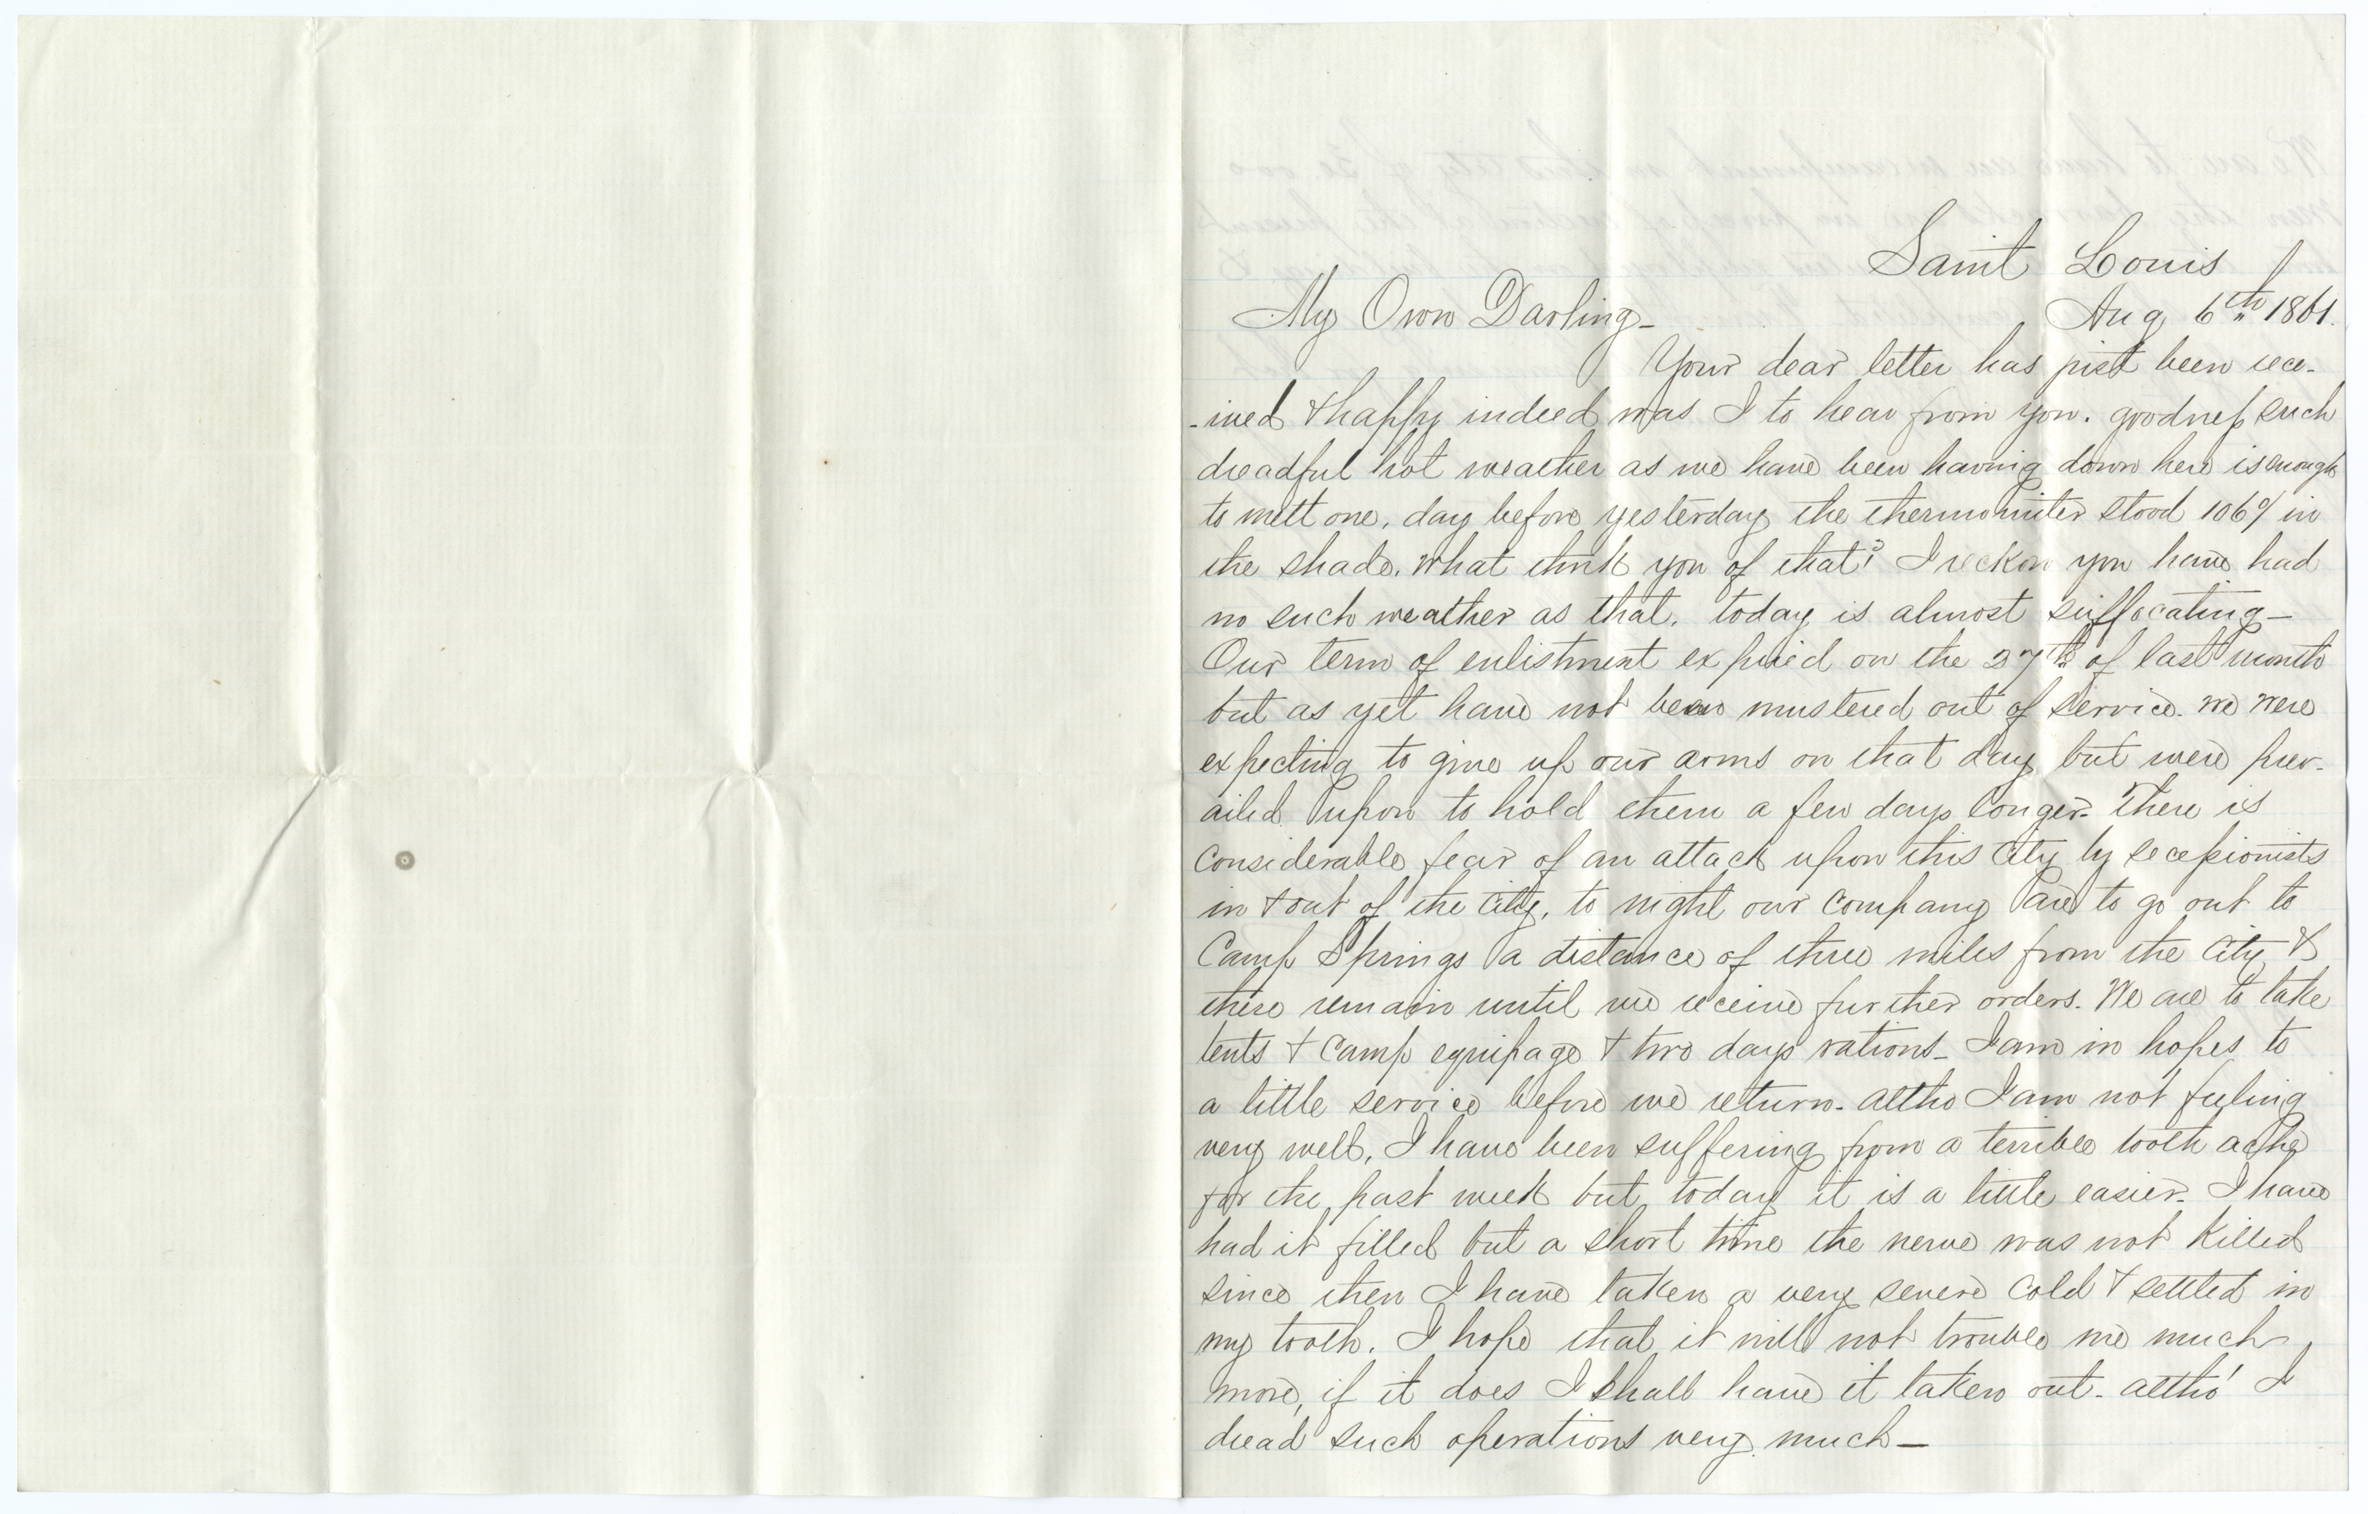 Saint Louis
Aug 6th 1861.
My Own Darling–
Your dear letter has just been rece-
-ived & happy indeed was I to hear from you. goodness such
dreadful hot weather as we have been having down here is enough
to melt one, day before yesterday the thermomiter stood 106° in
the shade. what think you of that? I reckon you have had
no such weather as that. today is almost suffocating–
Our term of enlistment expired on the 27th of last month
but as yet have not been mustered out of service. we were
expecting to give up our arms on that day but were prev-
ailed upon to hold them a few days longer– There is
considerable fear of an attack upon this City by secessionists
in & out of the City, to night our company are to go out to
Camp Springs a distance of three miles from the City &
there remain until we receive further orders. We are to take
tents & camp equipage & two days rations– I am in hopes to
a little service before we return– altho I am not feeling
very well, I have been suffering from a terrible tooth ache
for the past week but today it is a little easier– I have
had it filled but a short time the nerve was not killed
since then I have taken a very severe cold & settled in
my tooth. I hope that it will not trouble me much
more, if it does I shall have it taken out– altho' I
dread such operations very much–